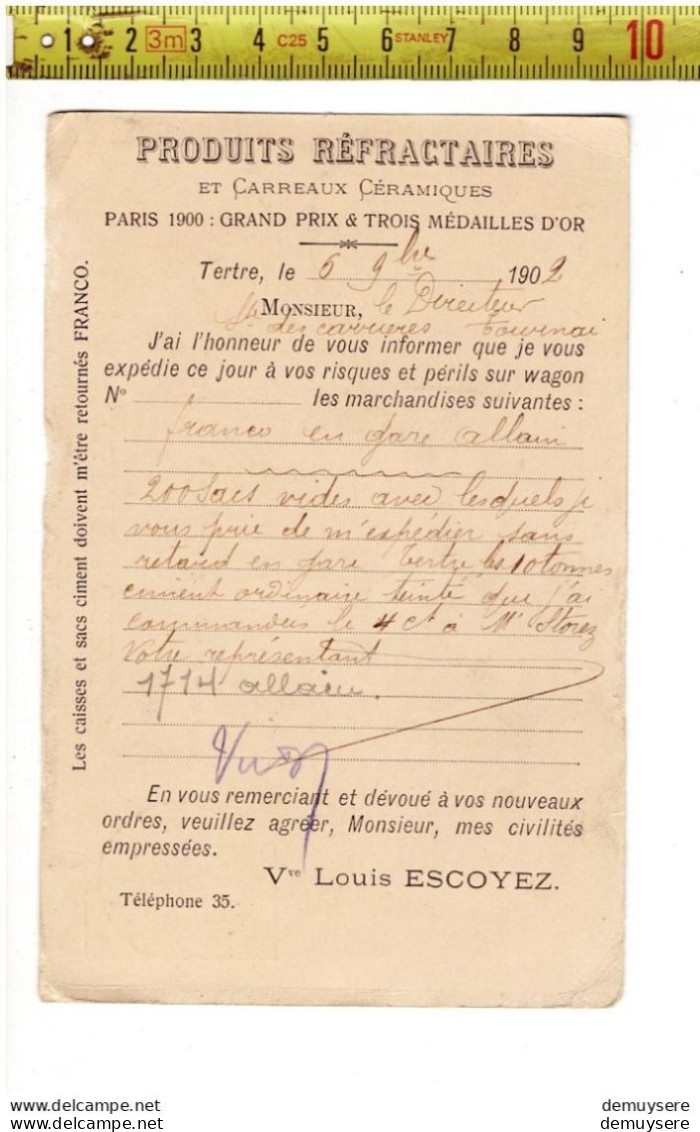 1 2 3m 3 4 C25 5 6 STANLEY 7 8 9 10
PRODUITS RÉFRACTAIRES
ET CARREAUX CÉRAMIQUES
PARIS 1900 : GRAND PRIX & TROIS MÉDAILLES D'OR
Tertre, le 6 9bre 1902
MONSIEUR, le Directeur
des carrières Tournai
J'ai l'honneur de vous informer que je vous
expédie ce jour à vos risques et périls sur wagon
N° les marchandises suivantes :
franco en gare allain
200 sacs vides avec lesquels je
vous prie de m'expédier sans
retard en gare Tertre les 10 tonnes
ciment ordinaire teinté que j'ai
commandées le 4 ct à Mr Storez
votre représentant
1714 allain.
En vous remerciant et dévoué à vos nouveaux
ordres, veuillez agréer, Monsieur, mes civilités
empressées.
Vve LOUIS ESCOYEZ.
Téléphone 35.
Les caisses et sacs ciment doivent m'être retournés FRANCO.
demuysere
demuysere
demuysere
demuysere